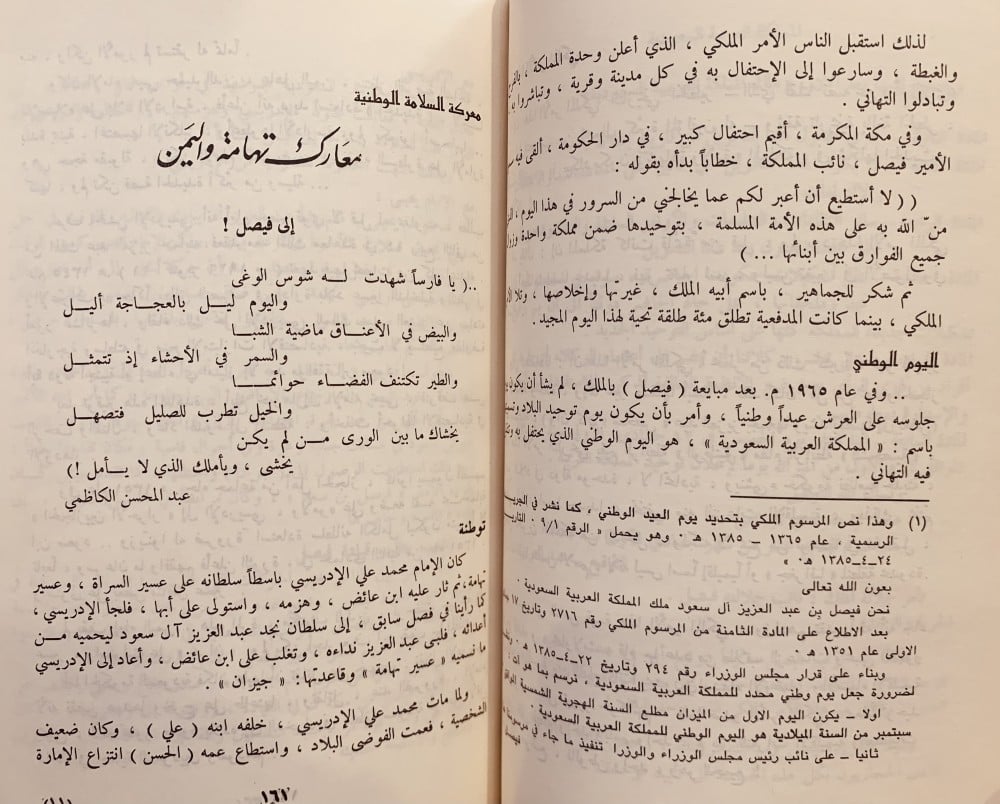 لذلك استقبل الناس الأمر الملكي ، الذي أعلن وحدة المملكة ،
والغبطة ، وسارعوا إلى الإحتفال به في كل مدينة وقرية ، وتباشروا به
وتبادلوا التهاني .
وفي مكة المكرمة ، أقيم احتفال كبير ، في دار الحكومة ، ألقى فيه
الأمير فيصل ، نائب المملكة ، خطاباً بدأه بقوله :
( ( لا أستطيع أن أعبر لكم عما يخالجني من السرور في هذا اليوم ،
منّ الله به على هذه الأمة المسلمة ، بتوحيدها ضمن مملكة واحدة
جميع الفوارق بين أبنائها ... )
ثم شكر للجماهير ، باسم أبيه الملك ، غيرتها وإخلاصها ،
الملكي ، بينما كانت المدفعية تطلق مئة طلقة تحية لهذا اليوم المجيد .
اليوم الوطني
.. وفي عام ١٩٦٥ م. بعد مبايعة ( فيصل ) بالملك ، لم يشأ أن يكون
جلوسه على العرش عيداً وطنياً ، وأمر بأن يكون يوم توحيد البلاد
باسم : « المملكة العربية السعودية » ، هو اليوم الوطني الذي يحتفل به
فيه التهاني .
(١) وهذا نص المرسوم الملكي بتحديد يوم العيد الوطني ، كما نشر في
الرسمية ، عام ١٣٦٥ – ١٣٨٥ هـ ٠ وهو يحمل « الرقم ٩/١ ٠ التاريخ
٢٤–٤–١٣٨٥ هـ ٠ »
بعون الله تعالى
نحن فيصل بن عبد العزيز آل سعود ملك المملكة العربية السعودية ٠
بعد الاطلاع على المادة الثامنة من المرسوم الملكي رقم ٢٧١٦ وتاريخ ١٧
الاولى عام ١٣٥١ هـ ٠
وبناء على قرار مجلس الوزراء رقم ٢٩٤ وتاريخ ٢٢–٤–١٣٨٥ هـ ٠
لضرورة جعل يوم وطني محدد للمملكة العربية السعودية ، نرسم بما هو آت :
اولا – يكون اليوم الاول من الميزان مطلع السنة الهجرية الشمسية
سبتمبر من السنة الميلادية هو اليوم الوطني للمملكة العربية السعودية ٠
ثانيا – على نائب رئيس مجلس الوزراء والوزرا تنفيذ ما جاء في
فيصل
معركة السلامة الوطنية
معَارك تهامة واليَمن
إلى فيصل !
..( يا فارساً شهدت له شوس الوغى
واليوم ليل بالعجاجة أليل
والبيض في الأعناق ماضية الشبا
والسمر في الأحشاء إذ تتمثل
والطير تكتنف الفضاء حوائماً
والخيل تطرب للصليل فتصهل
يخشاك ما بين الورى من لم يكن
يخشى ، ويأملك الذي لا يأمل !)
عبد المحسن الكاظمي
توطئة
كان الإمام محمد علي الإدريسي باسطاً سلطانه على عسير السراة ، وعسير
تهامة، ثم ثار عليه ابن عائض ، وهزمه ، واستولى على أبها ، فلجأ الإدريسي ،
كما رأينا في فصل سابق ، إلى سلطان نجد عبد العزيز آل سعود ليحميه من
أعدائه ، فلبى عبد العزيز نداءه ، وتغلب على ابن عائض ، وأعاد إلى الإدريسي
ما نسميه « عسير تهامة » وقاعدتها: « جيزان » .
ولما مات محمد علي الإدريسي ، خلفه ابنه ( علي ) ، وكان ضعيف
الشخصية ، فعمت الفوضى البلاد ، واستطاع عمه ( الحسن ) انتزاع الإمارة
١٦١
(١١)